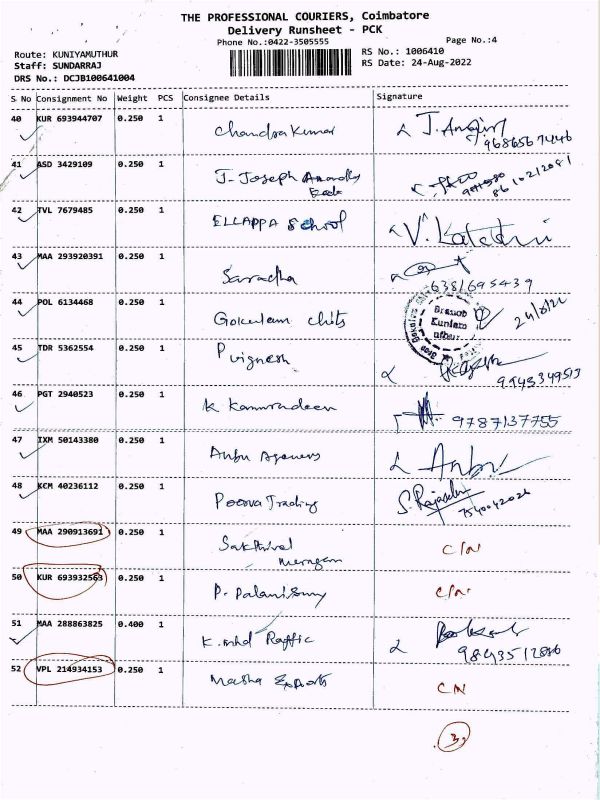 THE PROFESSIONAL COURIERS, Coimbatore
Delivery Runsheet - PCK
Phone No.:0422-3505555
Page No.:4
Route: KUNIYAMUTHUR
Staff: SUNDARRAJ
DRS No.: DCJB100641004
RS No.: 1006410
RS Date: 24-Aug-2022
S No Consignment No Weight PCS Consignee Details Signature
40 KUR 693944707 0.250 1 Chandra Kumar J.
41 ASD 3429109 0.250 1 J. Joseph
42 TVL 7679485 0.250 1 ELLAPPA School V.
43 MAA 293920391 0.250 1 Saradha
6381695439
44 POL 6134468 0.250 1 Gokulam chits 24/8/22
Branch
45 TDR 5362554 0.250 1 P vignesh
9943349513
46 PGT 2940523 0.250 1 K
9787137755
47 IXM 50143380 0.250 1 Anbu Agencys Anbu
48 KCM 40236112 0.250 1 Poorva Trading S.
7540042026
49 MAA 290913691 0.250 1 Sakthivel C/N
50 KUR 693932563 0.250 1 P. C/N
51 MAA 288863825 0.400 1 K. mhd Raffic
52 VPL 214934153 0.250 1 Masha Exports CN